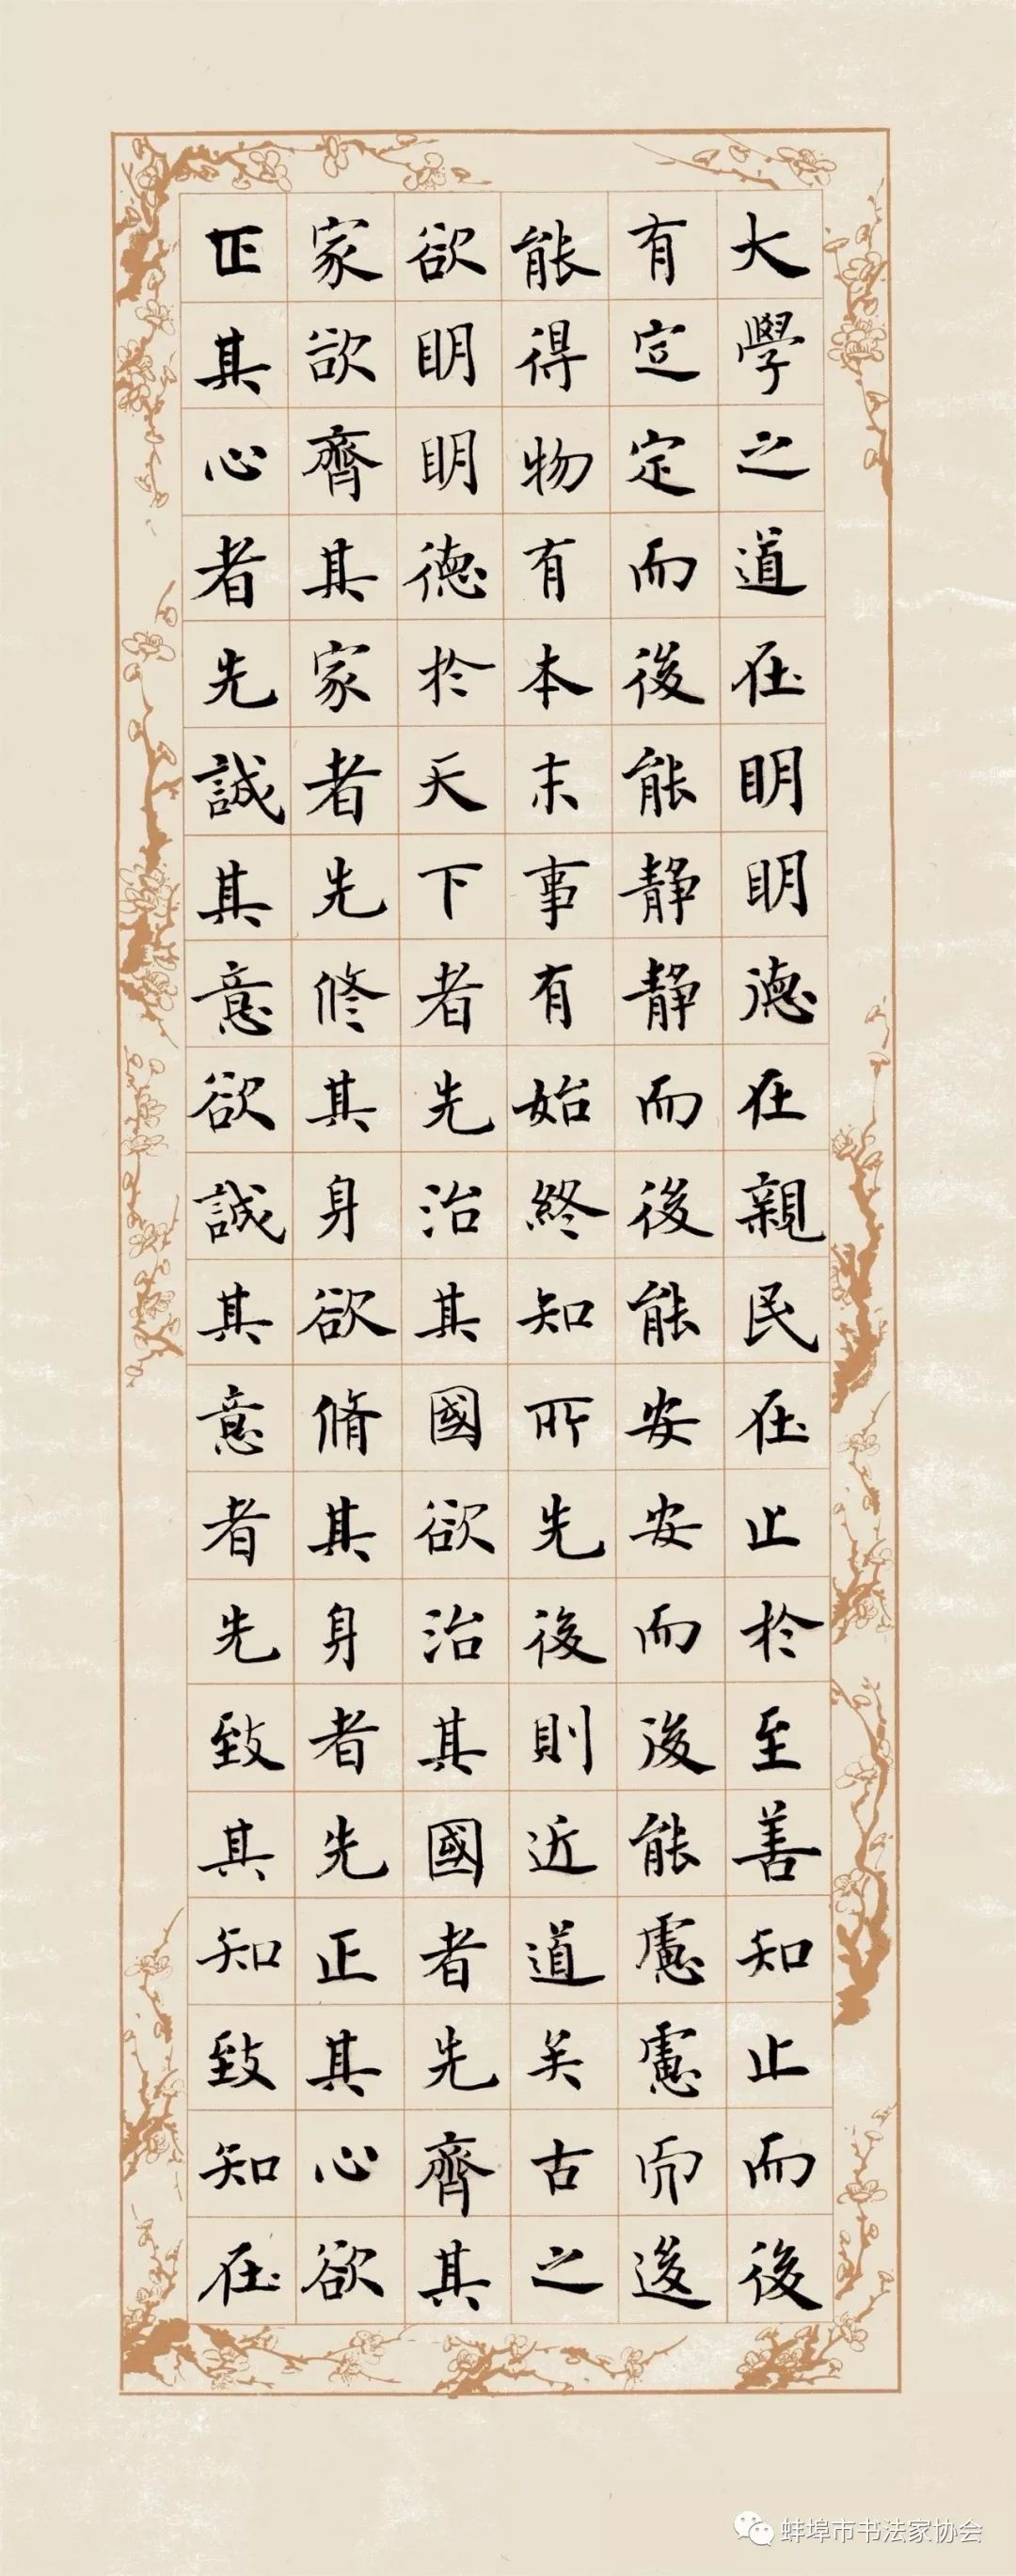 大學之道在明明德在親民在止於至善知止而後
有定定而後能静静而後能安安而後能慮慮而後
能得物有本末事有始終知所先後則近道矣古之
欲明明德於天下者先治其國欲治其國者先齊其
家欲齊其家者先修其身欲脩其身者先正其心欲
正其心者先誠其意欲誠其意者先致其知致知在
蚌埠市书法家协会